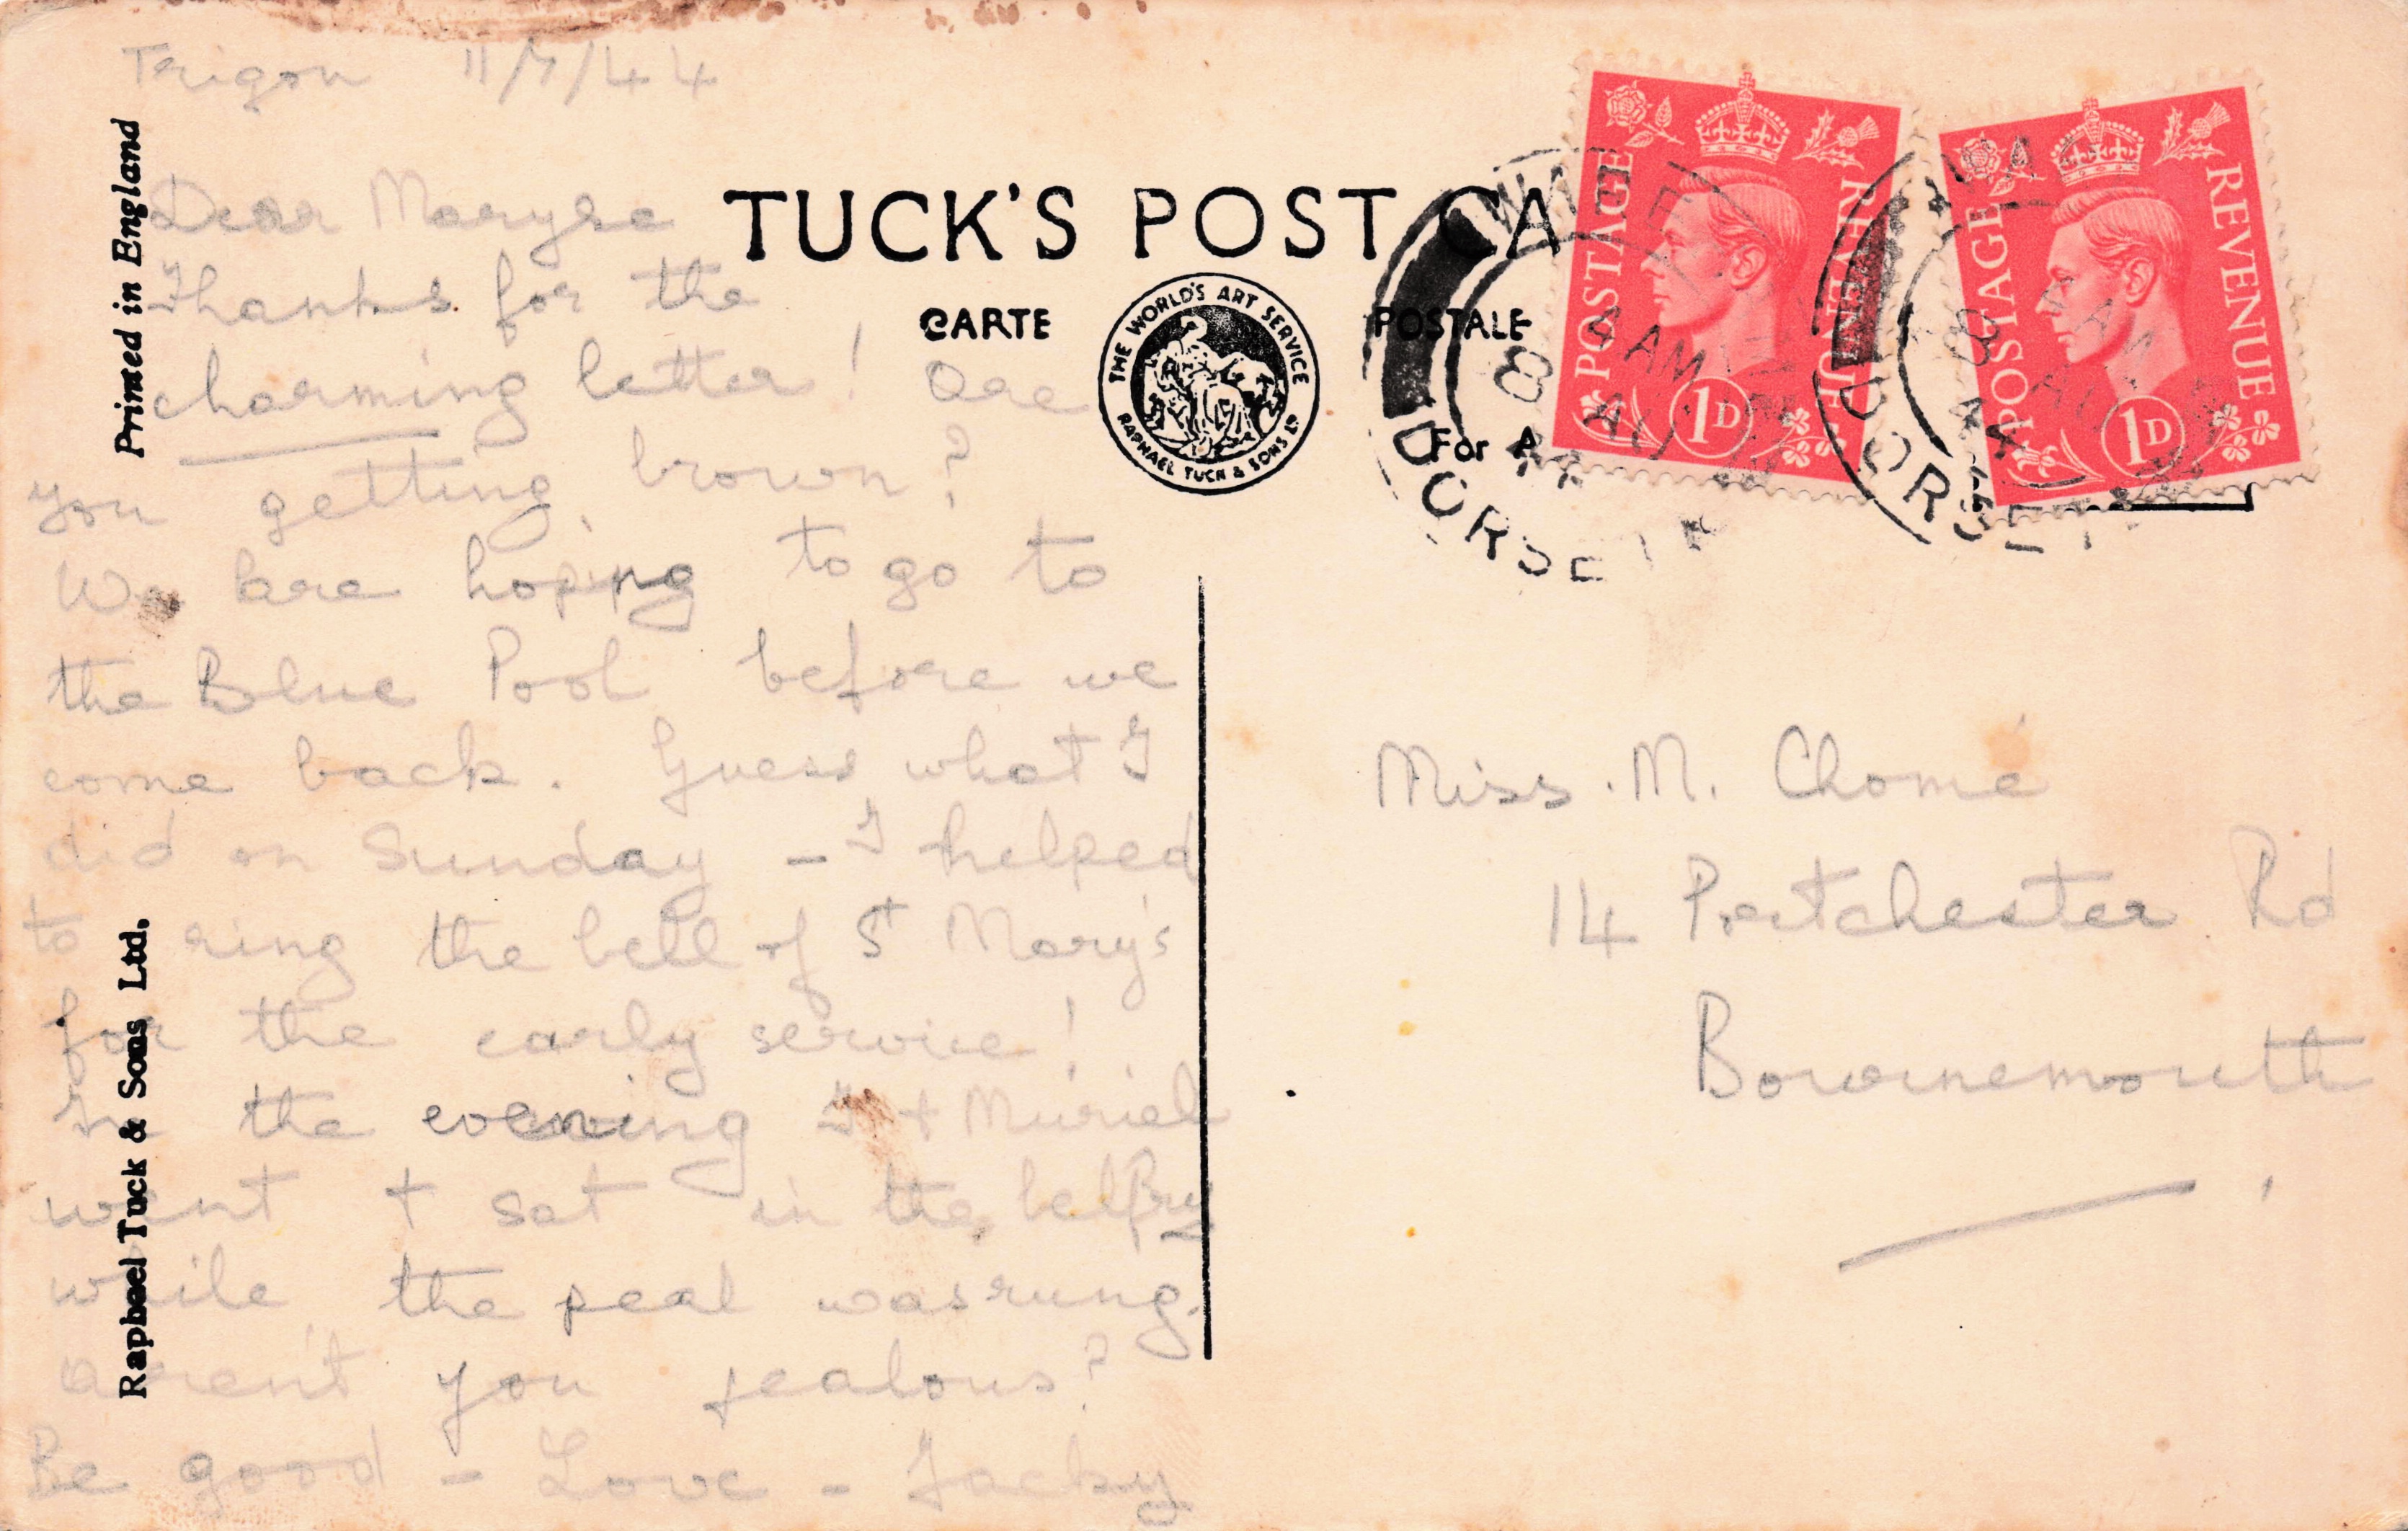 Trigon 11/7/44
Dear Maryse
Thanks for the
charming letter! Are
you getting brown?
We are hoping to go to
the Blue Pool before we
come back. Guess what I
did on Sunday – I helped
to ring the bell of St Mary's
for the early service!
In the evening I + Muriel
went + sat in the belfry
while the peal was rung.
Aren't you jealous?
Be good – Love – Jacky
Printed in England
Raphael Tuck & Sons Ltd.
TUCK'S POST CA
CARTE POSTALE
THE WORLD'S ART SERVICE
RAPHAEL TUCK & SONS LD
For A
POSTAGE REVENUE
1D
POSTAGE REVENUE
1D
WARE
DORSET
AM
AU
DORSET
AM
AU
Miss. M. Chomé
14 Portchester Rd
Bournemouth